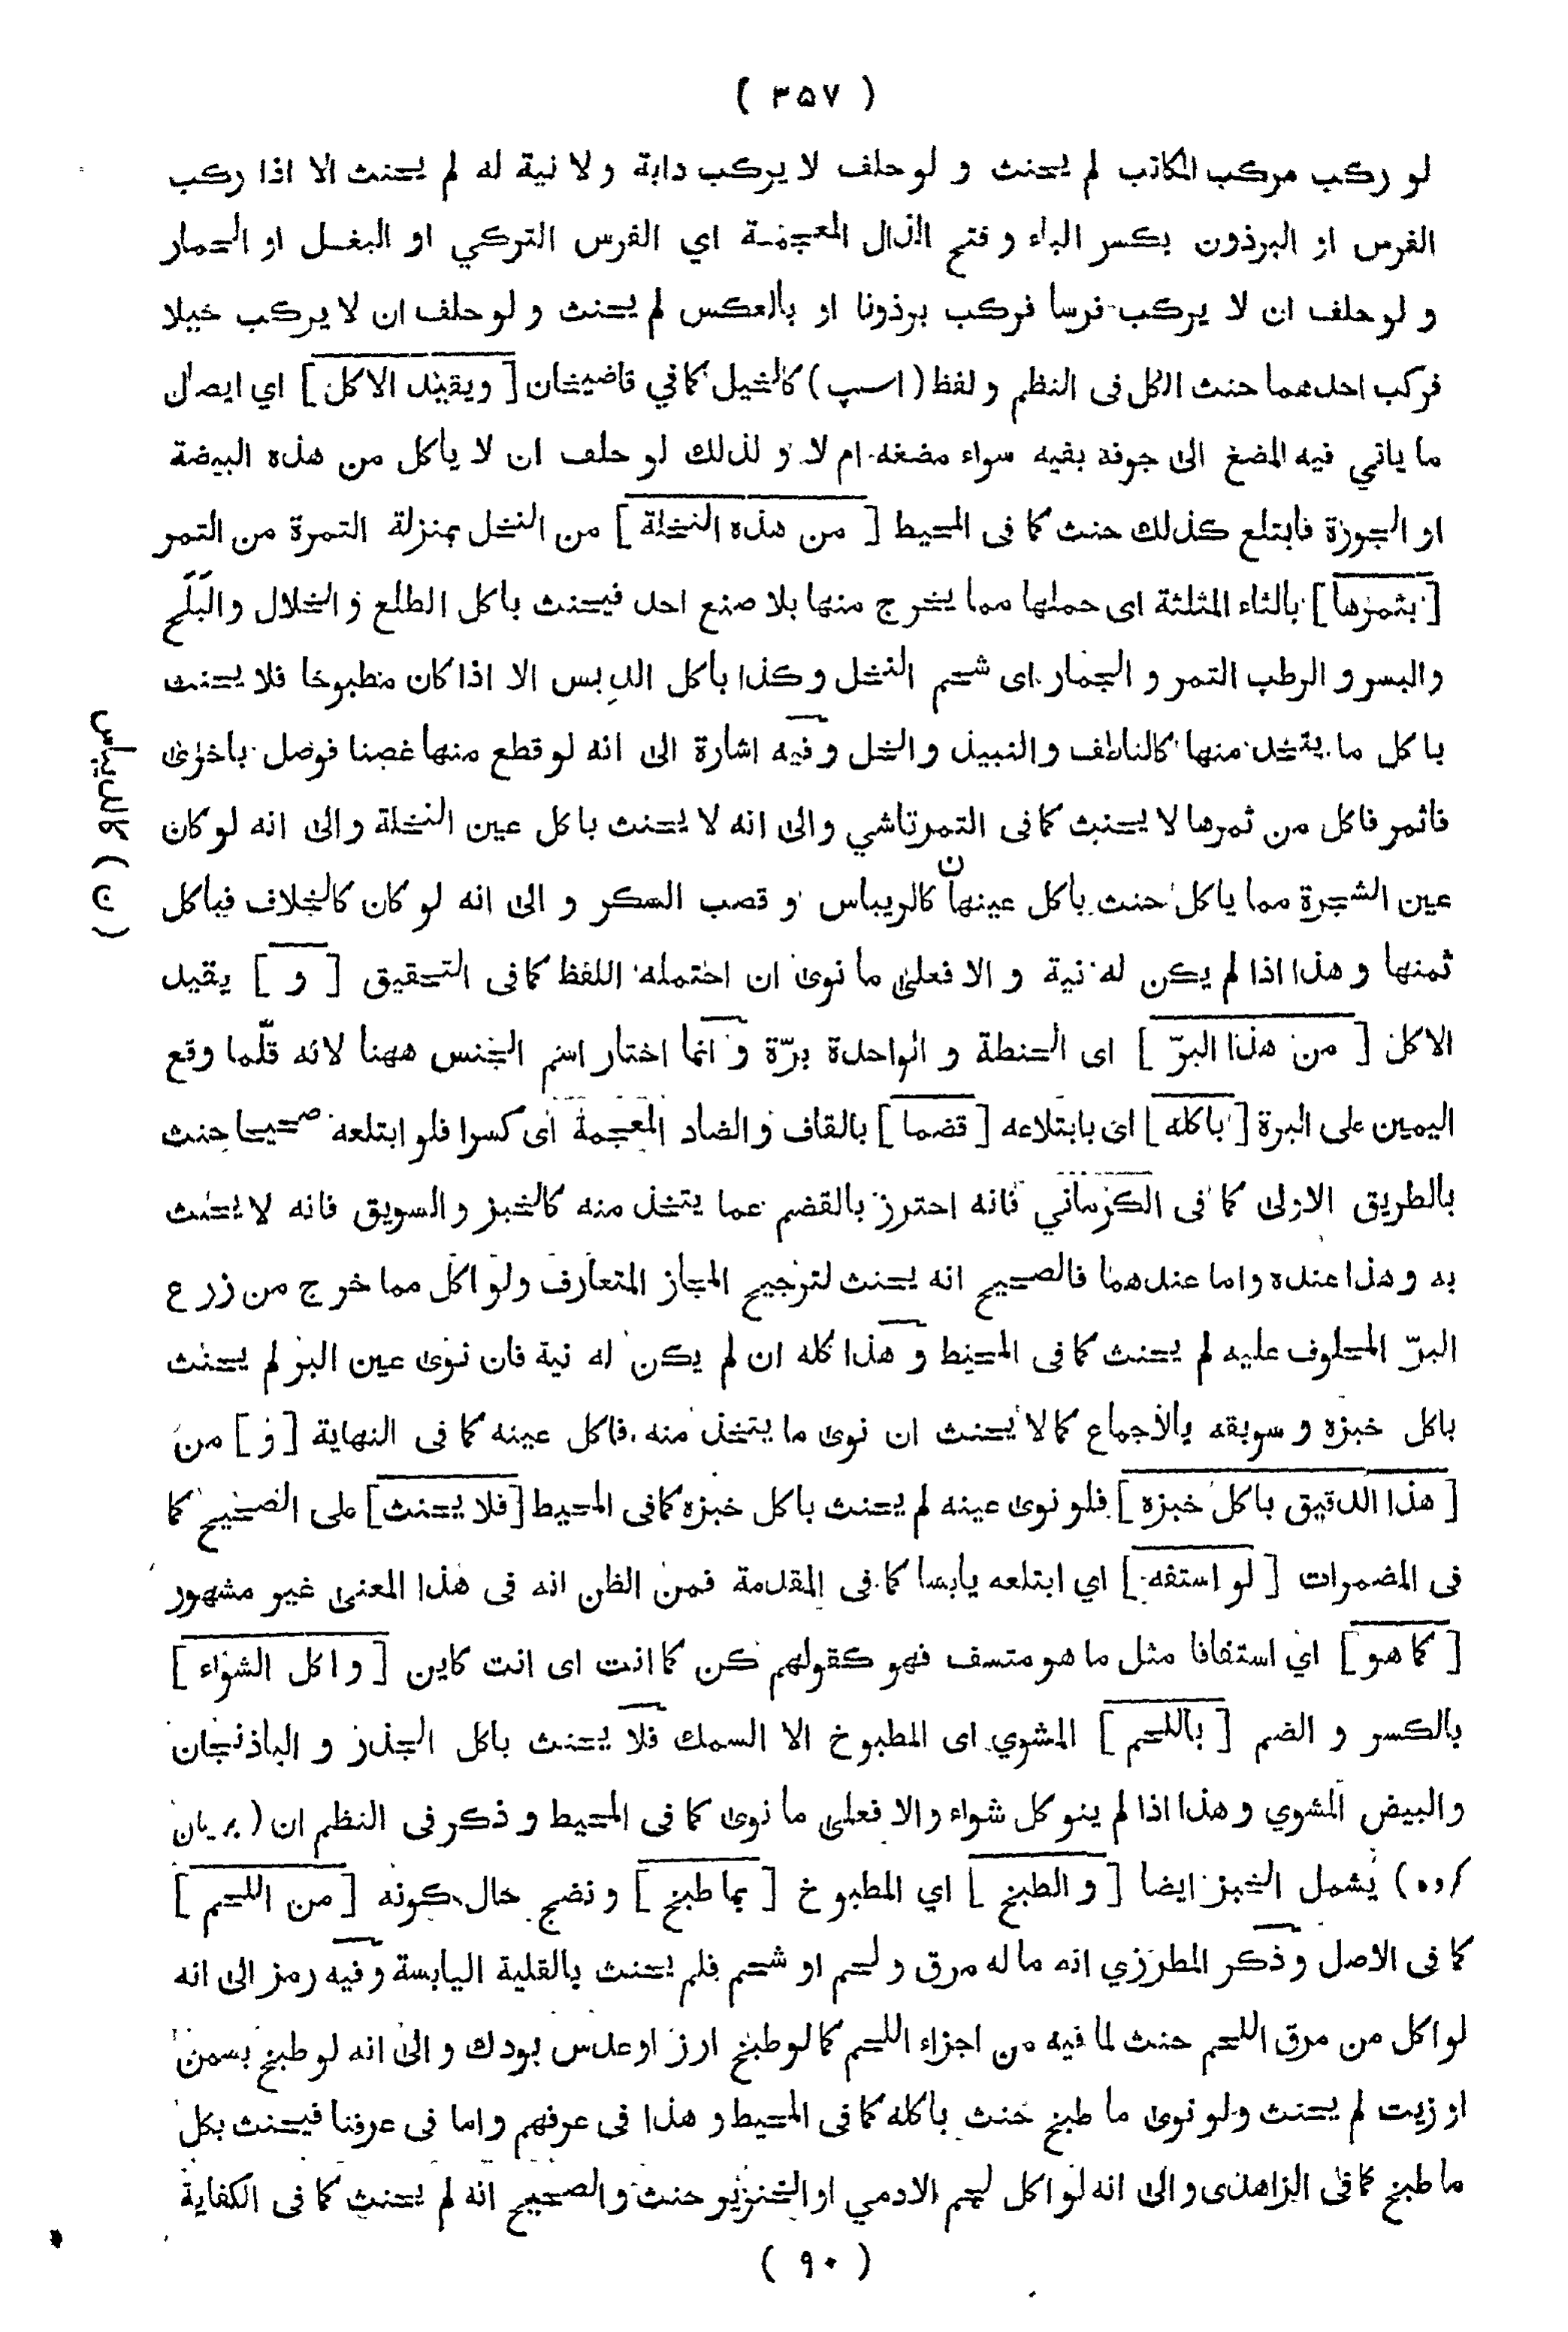 ( ٣٥٧ )
لو ركب مركب المكاتب لم يحنث و لو حلف لا يركب دابة و لا نية له لم يحنث الا اذا ركب
الفرس او البرذون بكسر الباء و فتح الذال المعجمة اي الفرس التركي او البغل او الحمار
و لو حلف ان لا يركب فرسا فركب برذونا او بالعكس لم يحنث و لو حلف ان لا يركب خيلا
فركب احدهما حنث الكل فى النظم و لفظ ( اسپ ) كالخيل كما في قاضيخان [ ويقيد الاكل ] اي ايصال
ما ياتي فيه المضغ الى جوفه بفيه سواء مضغه ام لا و لذلك لو حلف ان لا ياكل من هذه البيضة
او الجوزة فابتلع كذلك حنث كما فى المحيط [ من هذه النخلة ] من النخل بمنزلة التمرة من التمر
[ بثمرها ] بالثاء المثلثة اى حملها مما يخرج منها بلا صنع احد فيحنث باكل الطلع و الخلال والبَلَح
والبسر و الرطب التمر و الجمار اى شحم النخل و كذا باكل الدبس الا اذا كان مطبوخا فلا يحنث
باكل ما يتخذ منها كالناطف و النبيذ و الخل و فيه اشارة الى انه لو قطع منها غصنا فوصل باخرى
فاثمر فاكل من ثمرها لا يحنث كما فى التمرتاشي والى انه لا يحنث باكل عين النخلة والى انه لو كان
عين الشجرة مما ياكل حنث باكل عينها ن كالريباس و قصب السكر و الى انه لو كان كالخلاف فباكل
ثمنها و هذا اذا لم يكن له نية و الا فعلى ما نوى ان احتمله اللفظ كما فى التحقيق [ و ] يقيد
الاكل [ من هذا البرّ ] اى الحنطة و الواحدة برّة و انما اختار اسم الجنس ههنا لانه قلّما وقع
اليمين على البرة [ باكله ] اى بابتلاعه [ قضما ] بالقاف و الضاد المعجمة اى كسرا فلو ابتلعه صحيحا حنث
بالطريق الاولى كما فى الكرماني فانه احترز بالقضم عما يتخذ منه كالخبز و السويق فانه لا يحنث
به و هذا عنده و اما عندهما فالصحيح انه يحنث لترجيح المجاز المتعارف ولو اكل مما خرج من زرع
البرّ المحلوف عليه لم يحنث كما فى المحيط و هذا كله ان لم يكن له نية فان نوى عين البر لم يحنث
باكل خبزه و سويقه بالاجماع كما لا يحنث ان نوى ما يتخذ منه فاكل عينه كما فى النهاية [ و ] من
[ هذا الدقيق باكل خبزه ] فلو نوى عينه لم يحنث باكل خبزه كما فى المحيط [ فلا يحنث ] على الصحيح كما
فى المضمرات [ لو استفه ] اي ابتلعه يابسا كما فى المقدمة فمن الظن انه فى هذا المعنى غير مشهور
[ كما هو ] اي استفافا مثل ما هو متسف فهو كقولهم كن كما انت اى انت كاين [ و اكل الشواء ]
بالكسر و الضم [ باللحم ] المشوي اى المطبوخ الا السمك فلا يحنث باكل الجذر و الباذنجان
والبيض المشوي و هذا اذا لم ينو كل شواء والا فعلى ما نوى كما فى المحيط و ذكر فى النظم ان ( بريان
كرده ) يشمل الخبز ايضا [ و الطبخ ] اي المطبوخ [ بما طبخ ] و نضج حال كونه [ من اللحم ]
كما فى الاصل و ذكر المطرزي انه ما له مرق و لحم او شحم فلم يحنث بالقلية اليابسة و فيه رمز الى انه
لو اكل من مرق اللحم حنث لما فيه من اجزاء اللحم كما لو طبخ ارز او عدس بودك و الى انه لو طبخ بسمن
او زيت لم يحنث ولو نوى ما طبخ حنث باكله كما فى المحيط و هذا فى عرفهم و اما فى عرفنا فيحنث بكل
ما طبخ كما فى الزاهدى و الى انه لو اكل لحم الادمي او الخنزير حنث و الصحيح انه لم يحنث كما فى الكفاية
( ٩٠ )
( ن ) كالديباس